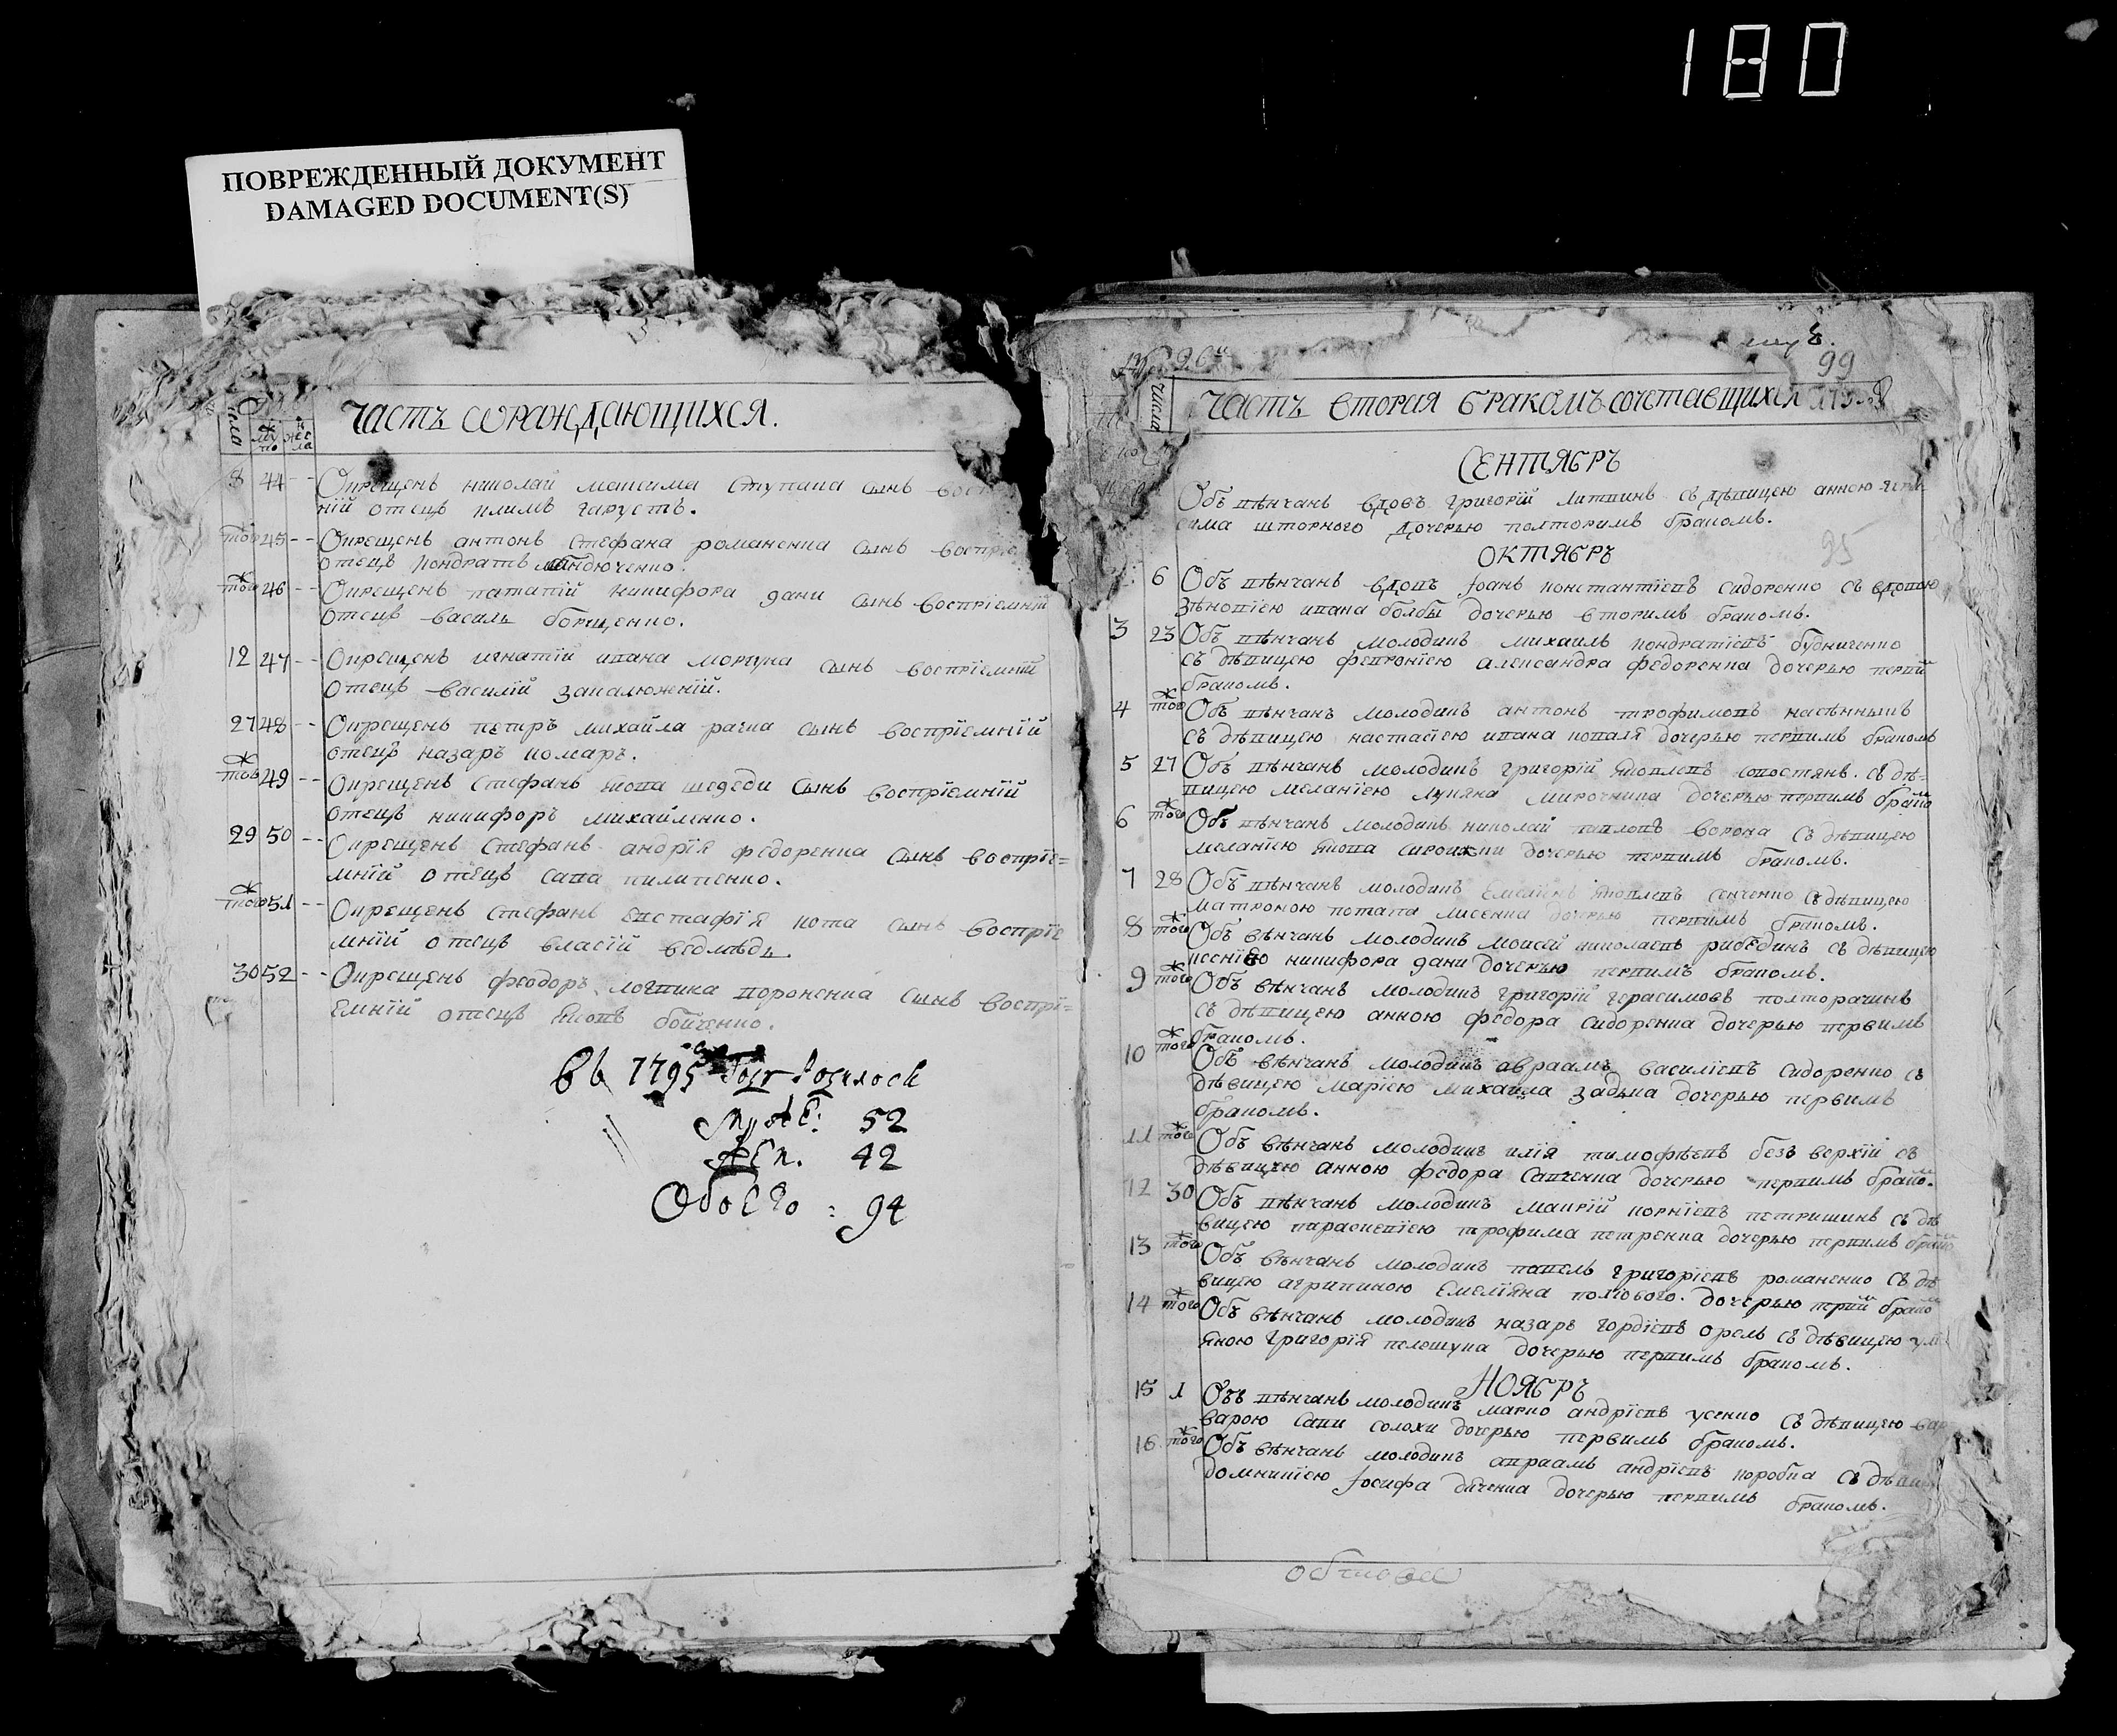 180
ПОВРЕЖДЕННЫЙ ДОКУМЕНТ
DAMAGED DOCUMENT(S)
числа
му жо
же н ла
Часть ѡ раждающихся.
8 44 -- Окрещенъ николай максима ступака сынъ
ній отецъ климъ гарустъ.
того ж 45 -- Окрещенъ антонъ стефана романенка сынъ воспріе
отецъ кондратъ
того ж 46 -- Окрещенъ ипатій никифора дани сынъ воспріемній
отецъ василь борщенко.
12 47 -- Окрещенъ игнатій ивана моргуна сынъ воспріемній
отецъ василій закалюжній.
27 48 -- Окрещенъ петръ михайла рачка сынъ воспріемній
отецъ назаръ комаръ.
того ж 49 -- Окрещенъ стефанъ якова шедеди сынъ воспріемній
отецъ никифоръ михайленко.
29 50 -- Окрещенъ стефанъ андрія федоренка сынъ воспріе=
мній отецъ сава пилипенко.
того ж 51 -- Окрещенъ стефанъ евстафія кота сынъ воспріе
мній отецъ власій ведмѣдь.
30 52 -- Окрещенъ феодоръ логвина вороненка сынъ воспрі=
емній отецъ яковъ бойченко.
въ 1795
муж: 52
жен. 42
Обоего: 94
99
числа
Часть вторая бракомъ сочетавщихся
Сентябрь
Объ вѣнчанъ вдовъ григорій литвинъ съ дѣвицею анною
сима шторного дочерью полторимъ бракомъ.
95
Октябрь
6 Объ вѣнчанъ вдовъ іоанъ константіевъ сидоренко съ вдовою
зѣновіею ивана болбы дочерью вторимъ бракомъ.
3 23 Объ вѣнчанъ молодикъ михаилъ кондратіевъ будниченко
съ дѣвицею февроніею александра федоренка дочерью перви
бракомъ.
4 того ж Объ вѣнчанъ молодикъ антонъ трофимовъ
съ дѣвицею настасіею ивана коваля дочерью первимъ бракомъ
5 27 Объ вѣнчанъ молодикъ григорій яковлевъ сопостянъ. съ дѣ=
вицею меланіею лукяна мирочника дочерью первимъ брако
6 того ж Объ вѣнчанъ молодикъ николай павловъ ворона съ дѣвицею
меланіею якова дочерью первимъ бракомъ.
7 28 Объ вѣнчанъ молодикъ яковлевъ сенченко съ дѣвицею
матроною потапа лисенка дочерью первимъ бракомъ.
8 того ж Объ вѣнчанъ молодикъ моисей николаевъ рибединъ съ дѣвицею
ксенією никифора дани дочерью первимъ бракомъ.
9 того ж Объ вѣнчанъ молодикъ григорій герасимовъ полторачинъ
съ дѣвицею анною федора сидоренка дочерью первимъ
бракомъ.
10 того ж Объ вѣнчанъ молодикъ авраамъ василіевъ сидоренко съ
дѣвицею маріею михаила дочерью первимъ
бракомъ.
11 того ж Объ вѣнчанъ молодикъ илія тимофѣевъ безъ верхій съ
дѣвицею анною федора савченка дочерью первимъ брако.
12 30 Объ вѣнчанъ молодикъ маркій корніевъ петришинъ съ дѣ
вицею параскевіею трофима петренка дочерью первимъ брако
13 того ж Объ вѣнчанъ молодикъ павелъ григоріевъ романенко съ дѣ
вицею агрипиною емеліяна полювого. дочерью перви брако
14 того ж Объ вѣнчанъ молодикъ назаръ гордіевъ орелъ съ дѣвицею
яною григорія пелешука дочерью первимъ бракомъ.
Ноябрь
15 1 Объ вѣнчанъ молодикъ марко андріевъ усенко съ дѣвицею вар
варою сави солохи дочерью первимъ бракомъ.
16 того ж Объ вѣнчанъ молодикъ авраамъ андріевъ коробка съ дѣви
домникіею іосифа дяченка дочерью первимъ бракомъ.